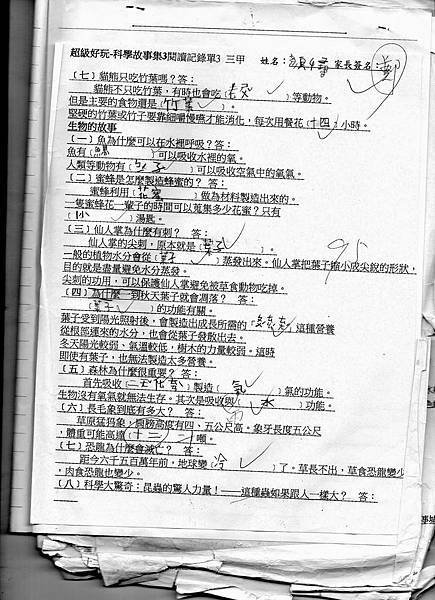 超級好玩-科學故事集3閱讀記錄單3 三甲 姓名： 家長簽名：鄭
（七）貓熊只吃竹葉嗎？答：
貓熊不只吃竹葉，有時也會吃（ ）等動物。
但是主要的食物還是（竹葉）。
堅硬的竹葉或竹子要靠細嚼慢嚥才能消化，每次用餐花（十四）小時。
生物的故事
（一）魚為什麼可以在水裡呼吸？答：
魚有（鰓）可以吸收水裡的氧。
人類等動物有（肺）可以吸收空氣中的氧氣。
（二）蜜蜂是怎麼製造蜂蜜的？ 答：
蜜蜂利用（花蜜）做為材料製造出來的。
一隻蜜蜂花一輩子的時間可以蒐集多少花蜜？只有
（小）湯匙。
（三）仙人掌為什麼有刺？ 答：
仙人掌的尖刺，原本是（葉子）。
一般的植物水分會從（葉子）蒸發出來。仙人掌把葉子縮小成尖銳的形狀，
目的就是盡量避免水分蒸發。
尖刺的功用，可以保護仙人掌避免被草食動物吃掉。
（四）為什麼一到秋天葉子就會凋落？ 答：
（葉子）的功能有關。
葉子受到陽光照射後，會製造出成長所需的（葉綠素）這種營養
從根部運來的水分，也會從葉子發散出去。
冬天陽光較弱、氣溫較低，樹木的力量較弱。這時
即使有葉子，也無法製造太多營養。
（五）森林為什麼很重要？ 答：
首先吸收（二氧化碳）製造（氧）氣的功能。
生物沒有氧氣就無法生存。其次是吸收與（水）功能。
（六）長毛象到底有多大？ 答：
草原猛獁象，肩膀高度有四，五公尺高。象牙長度五公尺
，體重可能高達（十三）噸。
（七）恐龍為什麼會滅亡？ 答：
距今六千五百萬年前，地球變（冷）了。草長不出，草食恐龍變少
，肉食恐龍也變少。
（八）科學大驚奇：昆蟲的驚人力量！——這種蟲如果跟人一樣大？ 答：